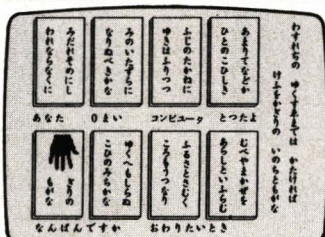 わすれぢの ゆくすえまでは かたければ
けふをかぎりの いのちともがな
あまりてなどか
ひとのこひしき
ふじのたかねに
ゆきはふりつつ
みのいたづらに
なりぬべきかな
みだれそめにし
われならなくに
あなた 0まい コンピュータ とったよ
むべやまかぜを
あらしといふらむ
ふるさとさむく
ころもうつなり
ゆくへもしらぬ
こひのみちかな
もがな
なんばんですか おわりたいとき